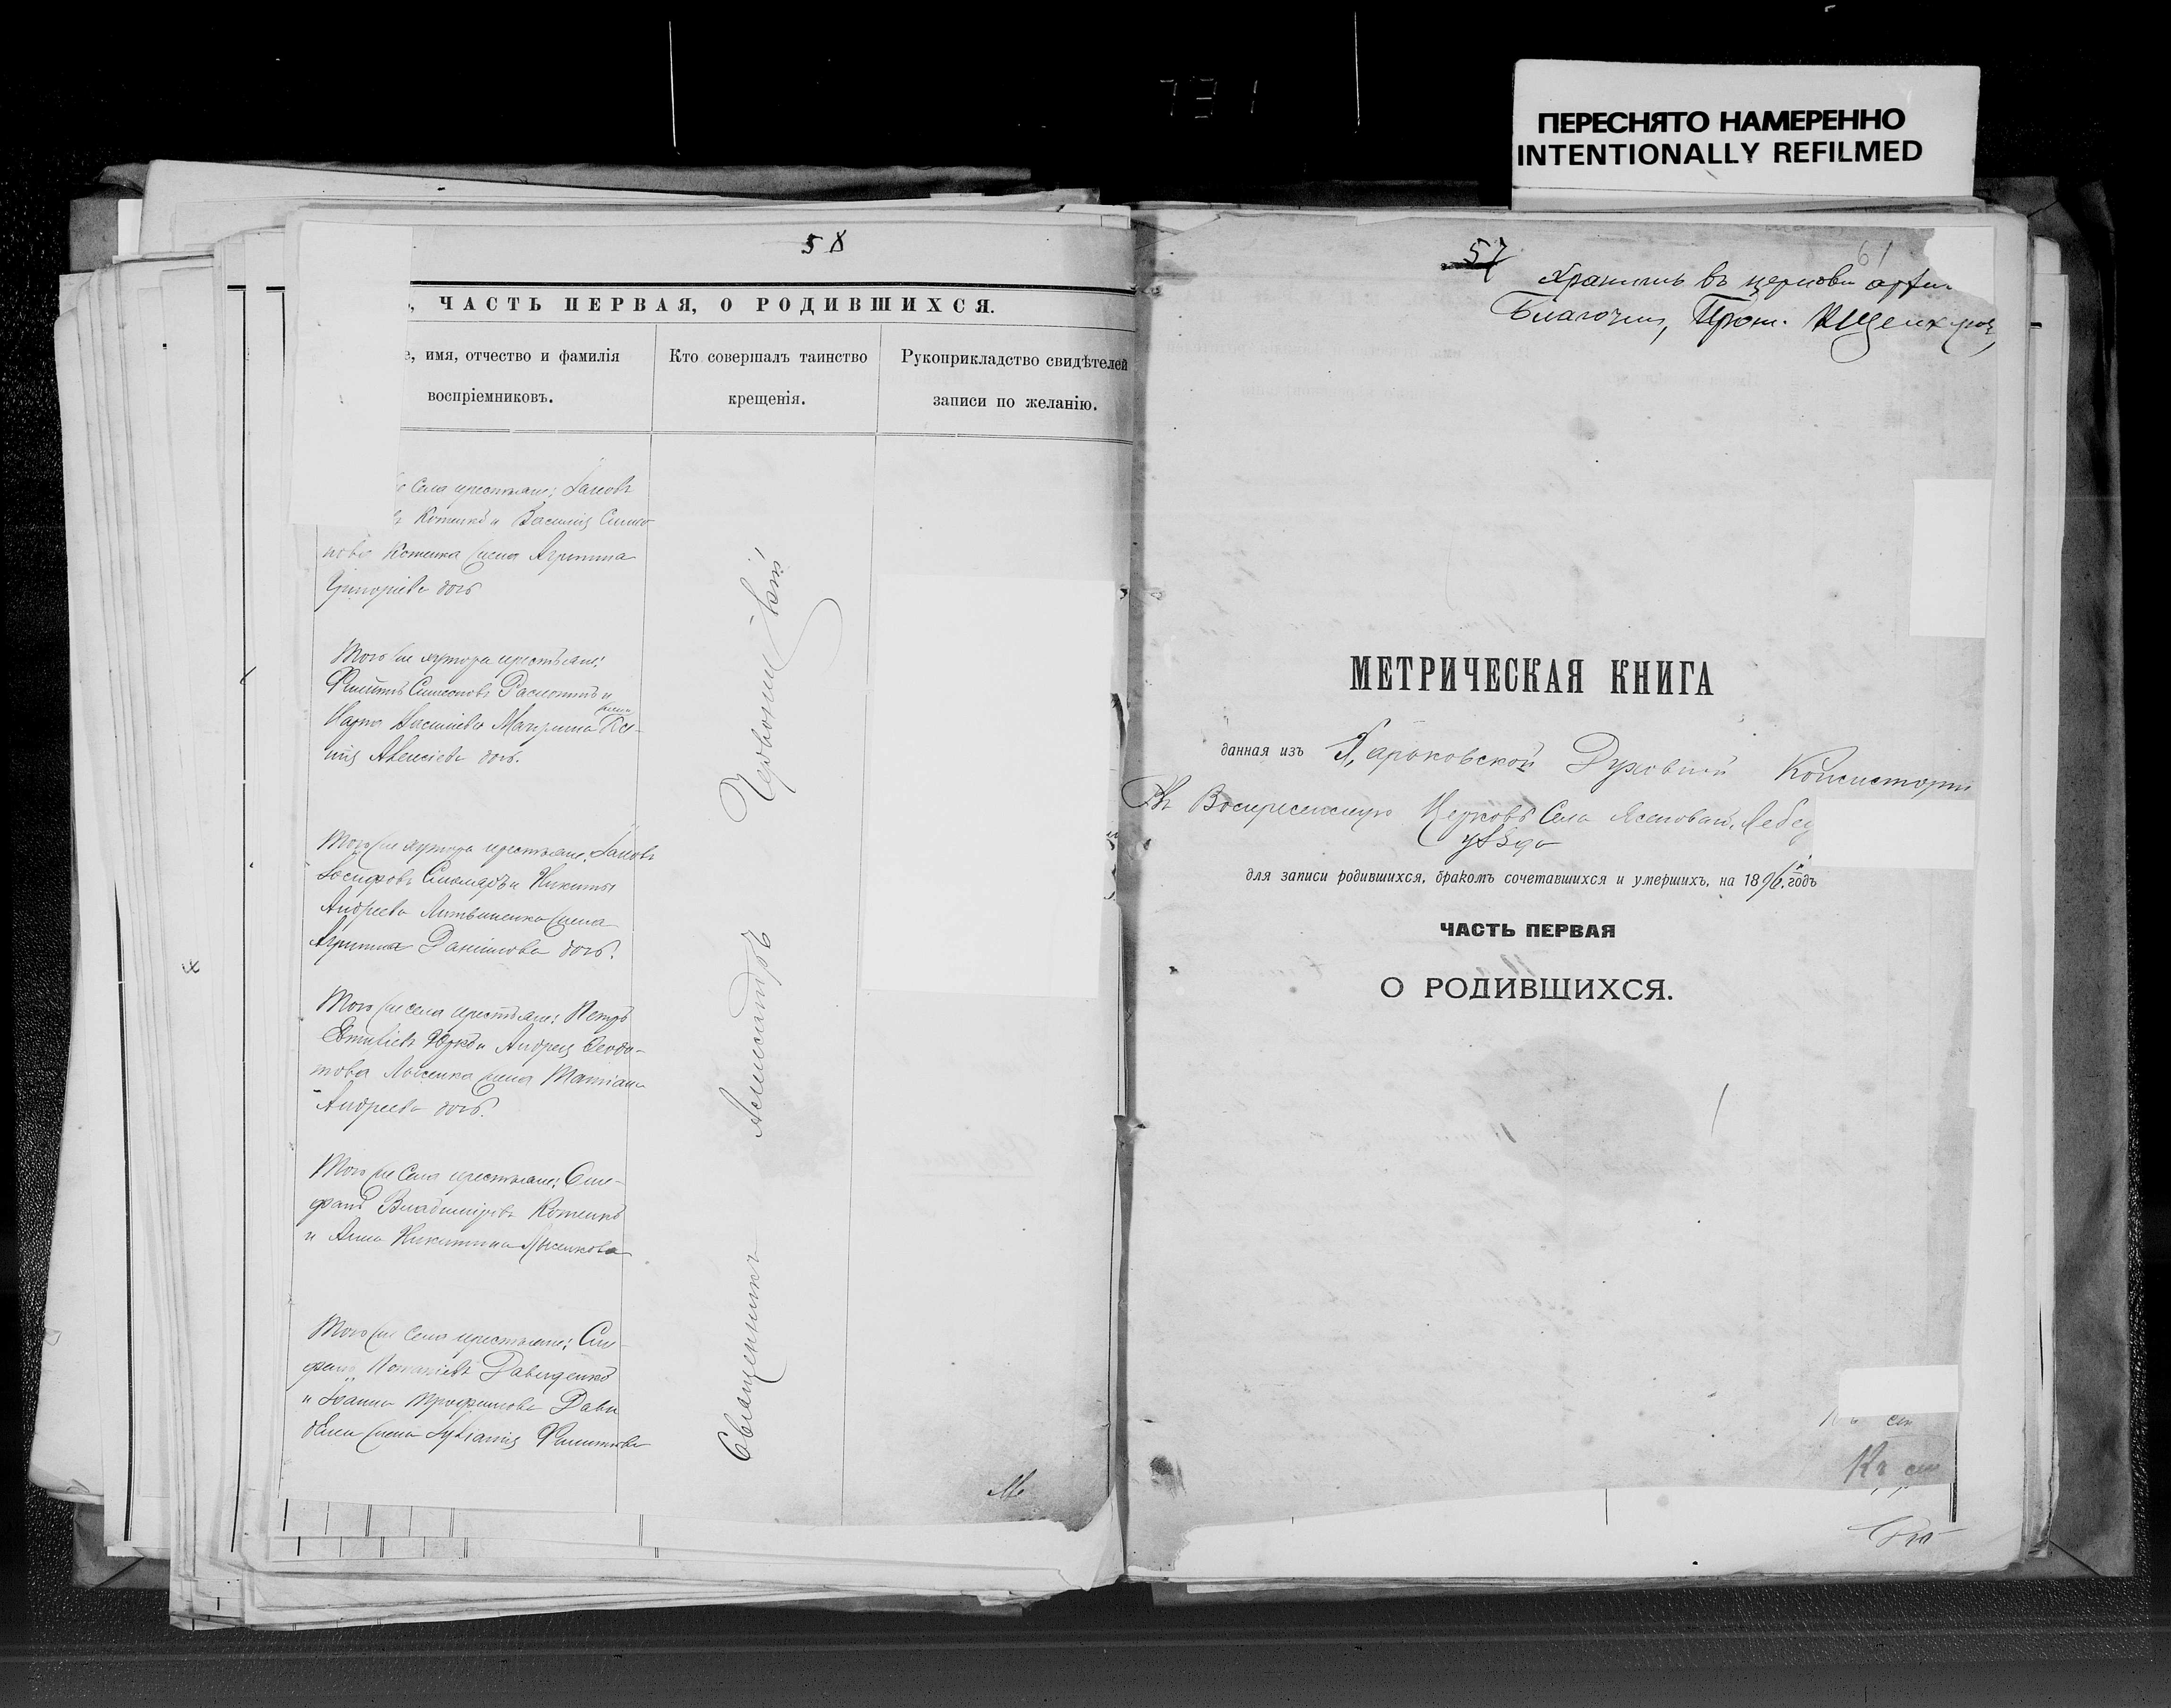 ПЕРЕСНЯТО НАМЕРЕННО
INTENTIONALLY REFILMED
58
ЧАСТЬ ПЕРВАЯ, О РОДИВШИХСЯ.
имя, отчество и фамилія
воспріемниковъ.
Кто совершалъ таинство
крещенія.
Рукоприкладство свидѣтелей
записи по желанію.
села крестьяне: Іаковъ
Котенко и Василія Симо
нова Котенка жена Агрипина
Григоріева дочь
Того же хутора крестьяне:
Филиппъ Симеоновъ и
Карпа жена
Алексіева дочь.
Того же хутора крестьяне: Іаковъ
Іосифовъ и Никиты
Андреева Литвиненко жена
Агрипина Даніилова дочь.
Того же села крестьяне: Петръ
Евтихіевъ и Андрея Феодо-
това Лысенка жена Татіана
Андреева дочь.
Того же села крестьяне: Сте-
фанъ Владиміровъ Котенко
и Анна Никитина Лысенкова
Того же села крестьяне: Сте-
фанъ Давиденко
и Іоанна Трофимова Дави
денка жена Филиппова
Священникъ Александръ Червонецкій
57
61
Хранить въ церковн архи
Благочин, Прот.
МЕТРИЧЕСКАЯ КНИГА
данная изъ Харьковской Духовной Консисторіи
Въ Воскресенскую Церковь Села Ясеноваго, Лебед
уѣзда
для записи родившихся, бракомъ сочетавшихся и умершихъ, на 1896 годъ
ЧАСТЬ ПЕРВАЯ
О РОДИВШИХСЯ.